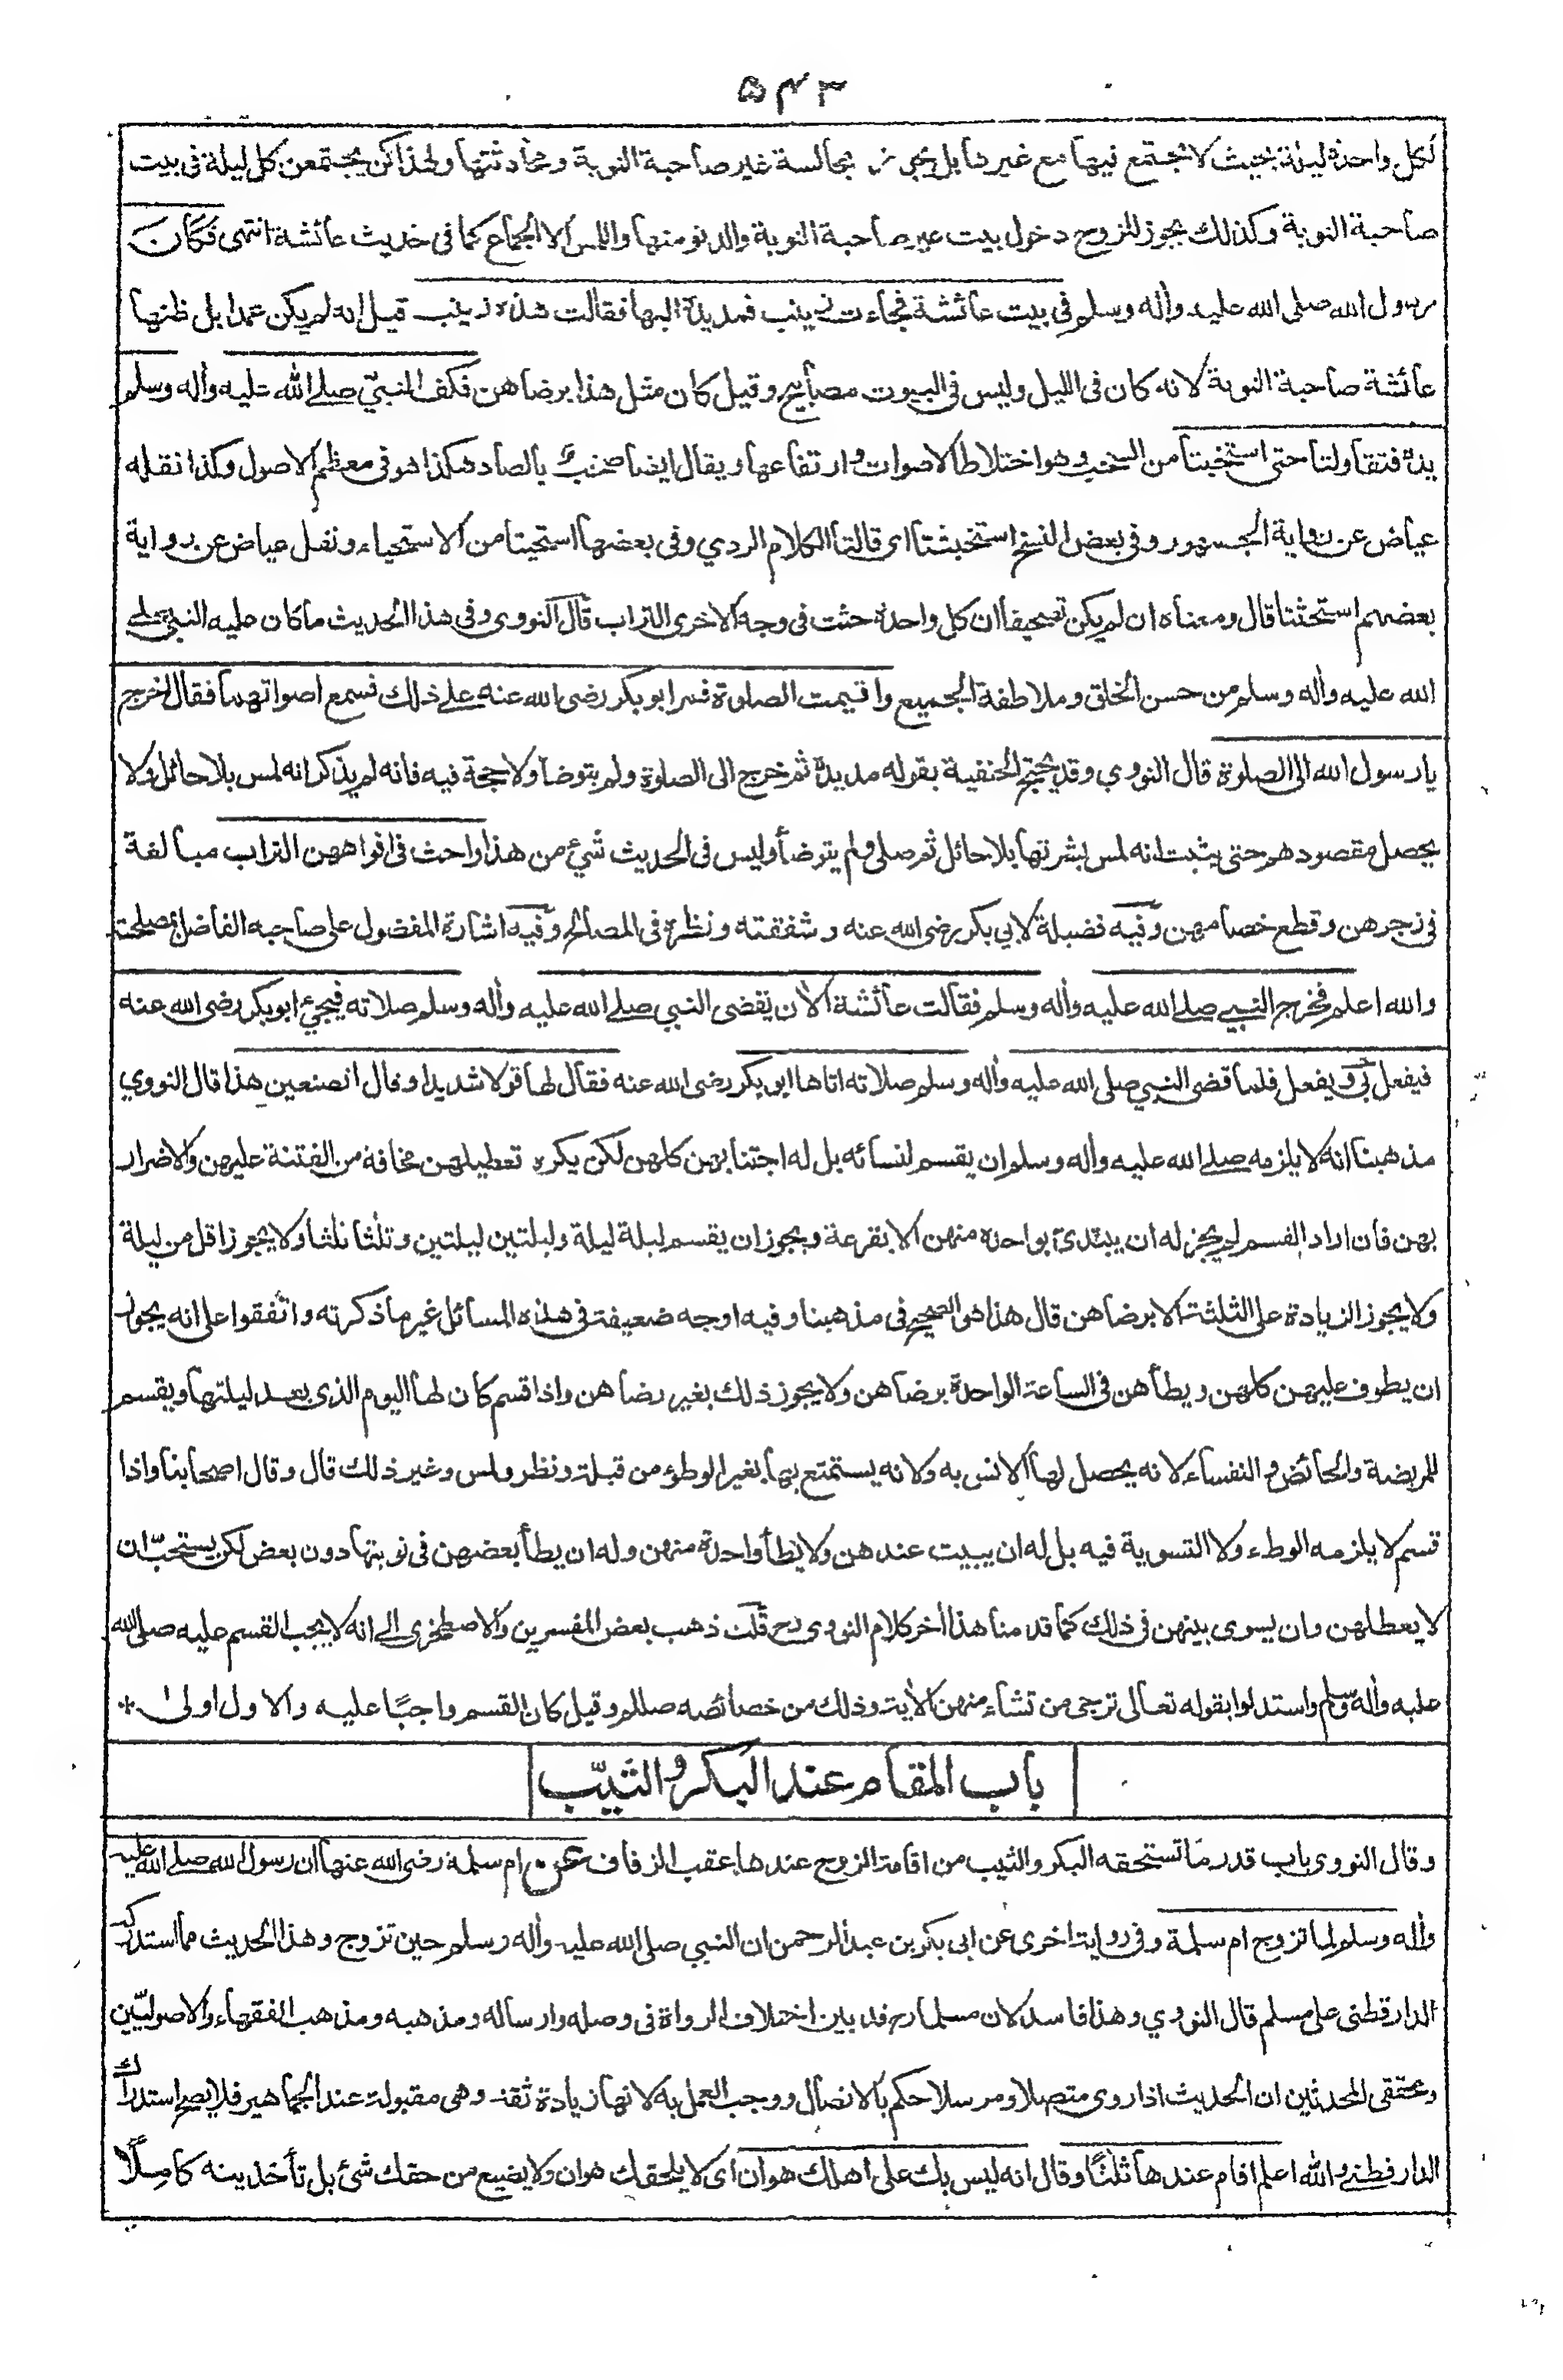 ۵۴۳
لكل واحدة ليلة بحيث لا تجتمع فيها مع غيرها بل يجوز مجالسة غير صاحبة النوبة ومحادثتها ولهذا كن يجتمعن كل ليلة فى بيت
صاحبة النوبة وكذلك يجوز للزوج دخول بيت غير صاحبة النوبة والدنو منها واللمس الا الجماع كما فى حديث عائشة انتهى فكان
رسول الله صلى الله عليه وأله وسلم فى بيت عائشة فجاءت زينب فمد يده اليها فقالت هذه زينب قيل انه لم يكن عمدا بل ظنها
عائشة صاحبة النوبة لانه كان فى الليل وليس فى البيوت مصابيح وقيل كان مثل هذا برضاهن فكف النبيّ صلى الله عليه وأله وسلم
يده فتقاولتا حتى استخبتا من السخب وهو اختلاط الاصوات وارتفاعها ويقال ايضا صخب بالصاد هكذا هو فى معظم الاصول وكذا نقله
عياض عن رواية الجمهور وفى بعض النسخ استخبثتا اى قالتا الكلام الردي وفى بعضها استحيتا من الاستحياء ونقل عياض عن رواية
بعضهم استحثتا قال ومعناه ان لم يكن تصحيفا ان كل واحدة حثت فى وجه الاخرى التراب قال النووى وفى هذا الحديث ما كان عليه النبي صلے
الله عليه وأله وسلم من حسن الخلق وملاطفة الجميع واقيمت الصلوة فمر ابو بكر رضى الله عنه على ذلك فسمع اصواتهما فقال اخرج
يا رسول الله الى الصلوة قال النووي وقد يحتج الحنفية بقوله مد يده ثم خرج الى الصلوة ولم يتوضا ولا حجة فيه فانه لم يذكر انه لمس بلا حائل ولا
يحصل مقصودهم حتى يثبت انه لمس بشرتها بلا حائل ثم صلى ولم يتوضأ وليس فى الحديث شئ من هذا واحث فى افواههن التراب مبالغة
فى زجرهن وقطع خصامهن وفيه فضيلة لابي بكر رضى الله عنه وشفقته ونظره فى المصالح وفيه اشارة المفضول على صاحبه الفاضل بمصلحته
والله اعلم فخرج النبي صلے الله عليه وأله وسلم فقالت عائشة الأن يقضى النبي صلے الله عليه وأله وسلم صلاته فيجئ ابو بكر رضى الله عنه
فيفعل بى ويفعل فلما قضى النبي صلى الله عليه وأله وسلم صلاته اتاها ابو بكر رضى الله عنه فقال لها قولا شديدا وقال اتصنعين هذا قال النووي
مذهبنا انه لا يلزمه صلے الله عليه وأله وسلم ان يقسم لنسائه بل له اجتنابهن كلهن لكن يكره تعطيلهن مخافة من الفتنة عليهن والاضرار
بهن فان اراد القسم لم يجز له ان يبتدئ بواحدة منهن الا بقرعة ويجوز ان يقسم ليلة ليلة وليلتين ليلتين وثلثا ثلثا ولا يجوز اقل من ليلة
ولا يجوز الزيادة على الثلثة الا برضاهن قال هذا هو الصحيح فى مذهبنا وفيه اوجه ضعيفة فى هذه المسائل غير ما ذكرته واتفقوا على انه يجوز
ان يطوف عليهن كلهن ويطأهن فى الساعة الواحدة برضاهن ولا يجوز ذلك بغير رضاهن واذا قسم كان لها اليوم الذى بعد ليلتها ويقسم
للمريضة والحائض والنفساء لانه يحصل لها الانس به ولانه يستمتع بها بغير الوطؤ من قبلة ونظر ولمس وغير ذلك قال وقال اصحابنا واذا
قسم لا يلزمه الوطء ولا التسوية فيه بل له ان يبيت عندهن ولا يطأ واحدة منهن وله ان يطأ بعضهن فى نوبتها دون بعض لكن يستحبّ ان
لا يعطلهن وان يسوى بينهن فى ذلك كما قدمنا هذا أخر كلام النووى رح قلت ذهب بعض المفسرين والاصطخرى الى انه لا يجب القسم عليه صلى الله
عليه وأله وسلم واستدلوا بقوله تعالى ترجى من تشاء منهن الأية وذلك من خصائصه صللم وقيل كان القسم واجبًا عليه والاول اولى *
باب المقام عند البكر والثيّب
وقال النووى باب قدر ما تستحقه البكر والثيب من اقامة الزوج عندها عقب الزفاف عن ام سلمة رضى الله عنها ان رسول الله صلے الله عليه
وأله وسلم لما تزوج ام سلمة وفى رواية اخرى عن ابى بكر بن عبد الرحمن ان النبي صلى الله عليه وأله وسلم حين تزوج وهذا الحديث مما استدركه
الدارقطنى على مسلم قال النووي وهذا فاسد لان مسلما رح قد بين اختلاف الرواة فى وصله وارساله ومذهبه ومذهب الفقهاء والاصوليّين
ومحققى المحدثين ان الحديث اذا روى متصلا ومرسلا حكم بالاتصال ووجب العمل به لانها زيادة ثقة وهى مقبولة عند الجماهير فلا يصح استدراك
الدارقطنى والله اعلم اقام عندها ثلثًا وقال انه ليس بك على اهلك هوان اى لا يلحقك هوان ولا يضيع من حقك شئ بل تأخذينه كاملًا